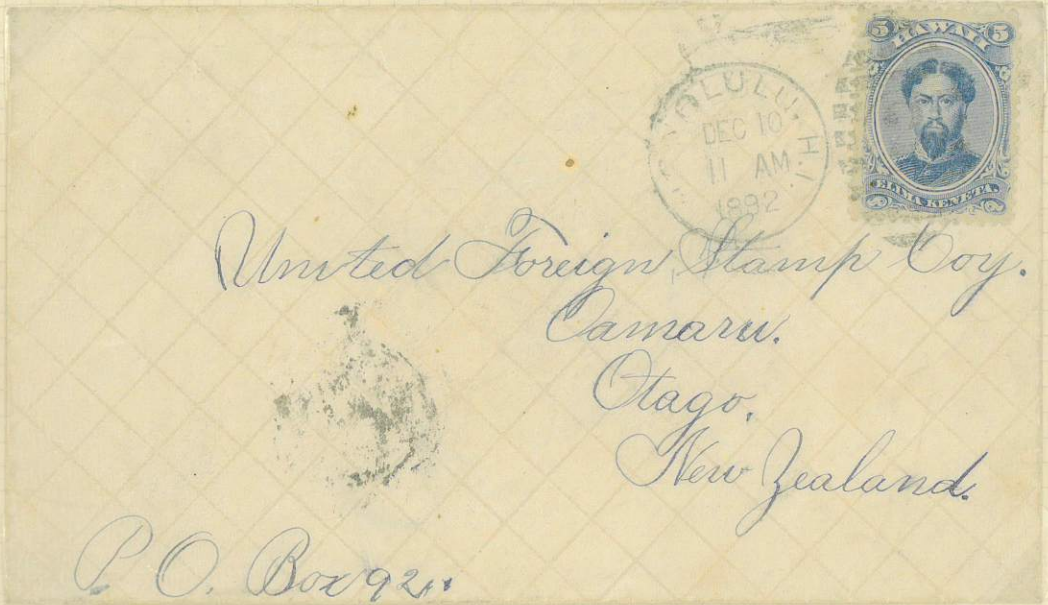 5 HAWAII 5
ELIMA KENETA.
HONOLULU. H.I.
DEC 10
11 AM
1892
United Foreign Stamp Coy.
Oamaru.
Otago,
New Zealand.
P. O. Box 92.